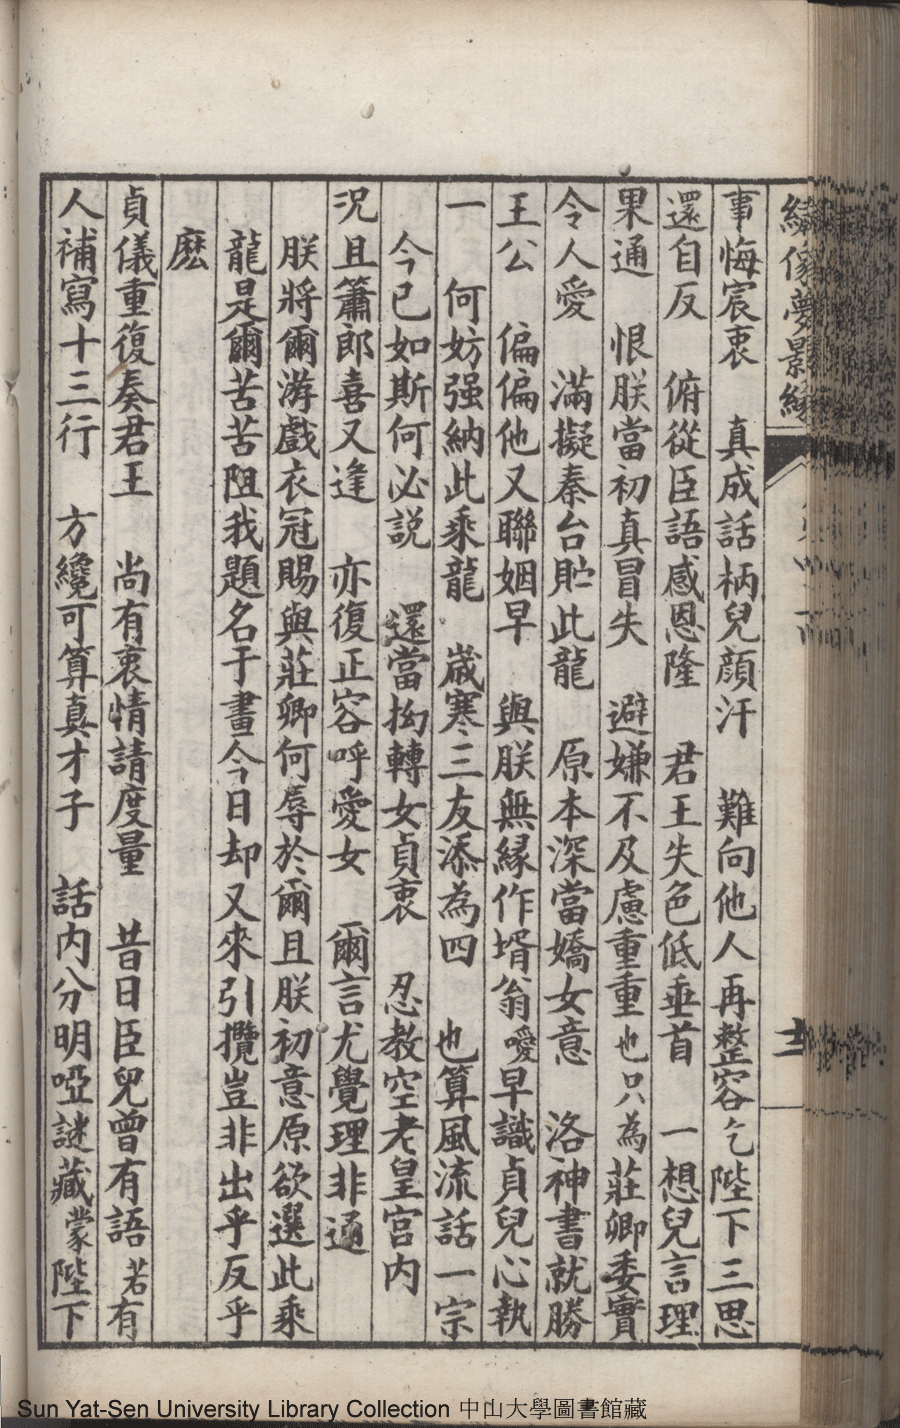 繡像夢影緣
十一
事悔宸衷　真成話柄兒顔汗　難向他人再整容乞陛下三思
還自反　俯從臣語感恩隆　君王失色低垂首　一想兒言理
果通　恨朕當初真冒失　避嫌不及慮重重也只為莊卿委實
令人愛　滿擬秦台貯此龍　原本深當嬌女意　洛神書就勝
王公　偏偏他又聯姻早　與朕無緣作壻翁噯早識貞兒心執
一　何妨强納此乘龍　嵗寒三友添為四　也算風流話一宗
今已如斯何必説　還當拗轉女貞衷　忍教空老皇宫内
況且簫郎喜又逢　亦復正容呼愛女　爾言尤覺理非通
朕將爾游戲衣冠賜與莊卿何辱於爾且朕初意原欲選此乘
龍是爾苦苦阻我題名于畫今日却又來引攬豈非出乎反乎
麽
貞儀重復奏君王　尚有衷情請度量　昔日臣兒曾有語若有
人補寫十三行　方纔可算真才子　話内分明啞謎藏蒙陛下
Sun Yat-Sen University Library Collection 中山大學圖書館藏